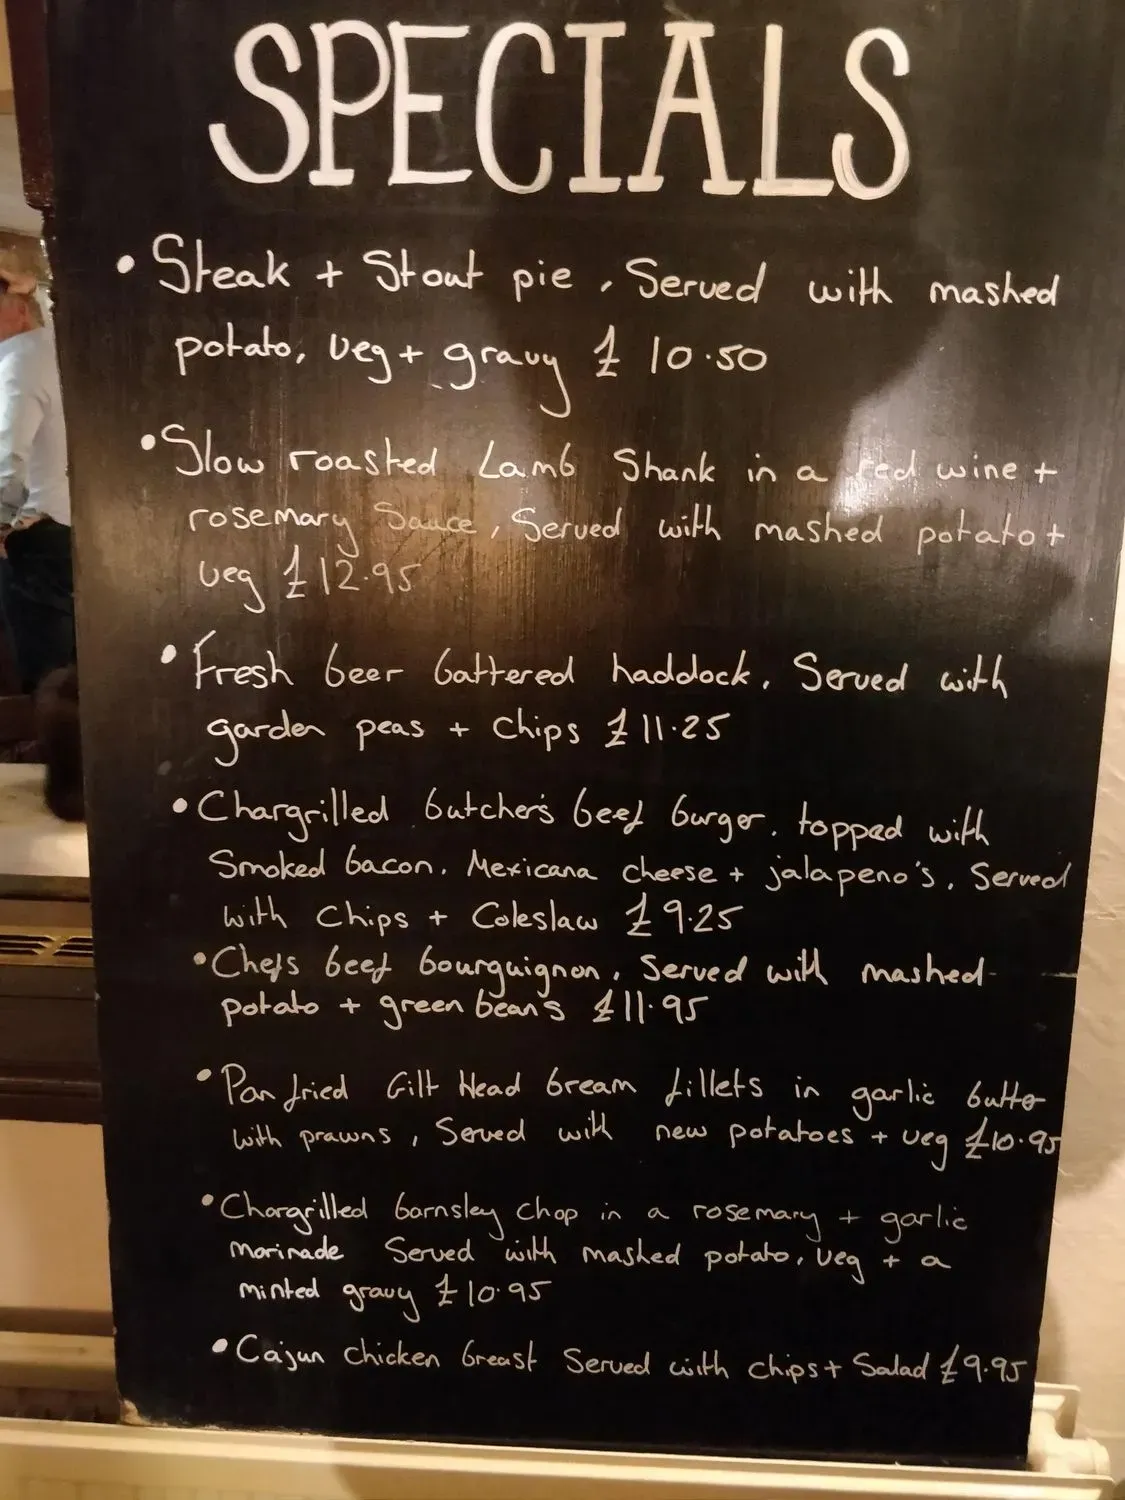 SPECIALS
• Steak + Stout pie, Served with mashed
potato, veg + gravy £10.50
• Slow roasted Lamb Shank in a red wine +
rosemary Sauce, Served with mashed potato +
veg £12.95
• Fresh beer battered haddock, Served with
garden peas + Chips £11.25
• Chargrilled butcher's beef burger, topped with
Smoked bacon, Mexicana cheese + jalapeno's, Served
with Chips + Coleslaw £9.25
• Chefs beef bourguignon, Served with mashed
potato + green beans £11.95
• Pan fried Gilt Head bream fillets in garlic butter
with prawns, Served with new potatoes + veg £10.95
• Chargrilled barnsley chop in a rosemary + garlic
marinade Served with mashed potato, veg + a
minted gravy £10.95
• Cajun chicken breast Served with chips + Salad £9.95